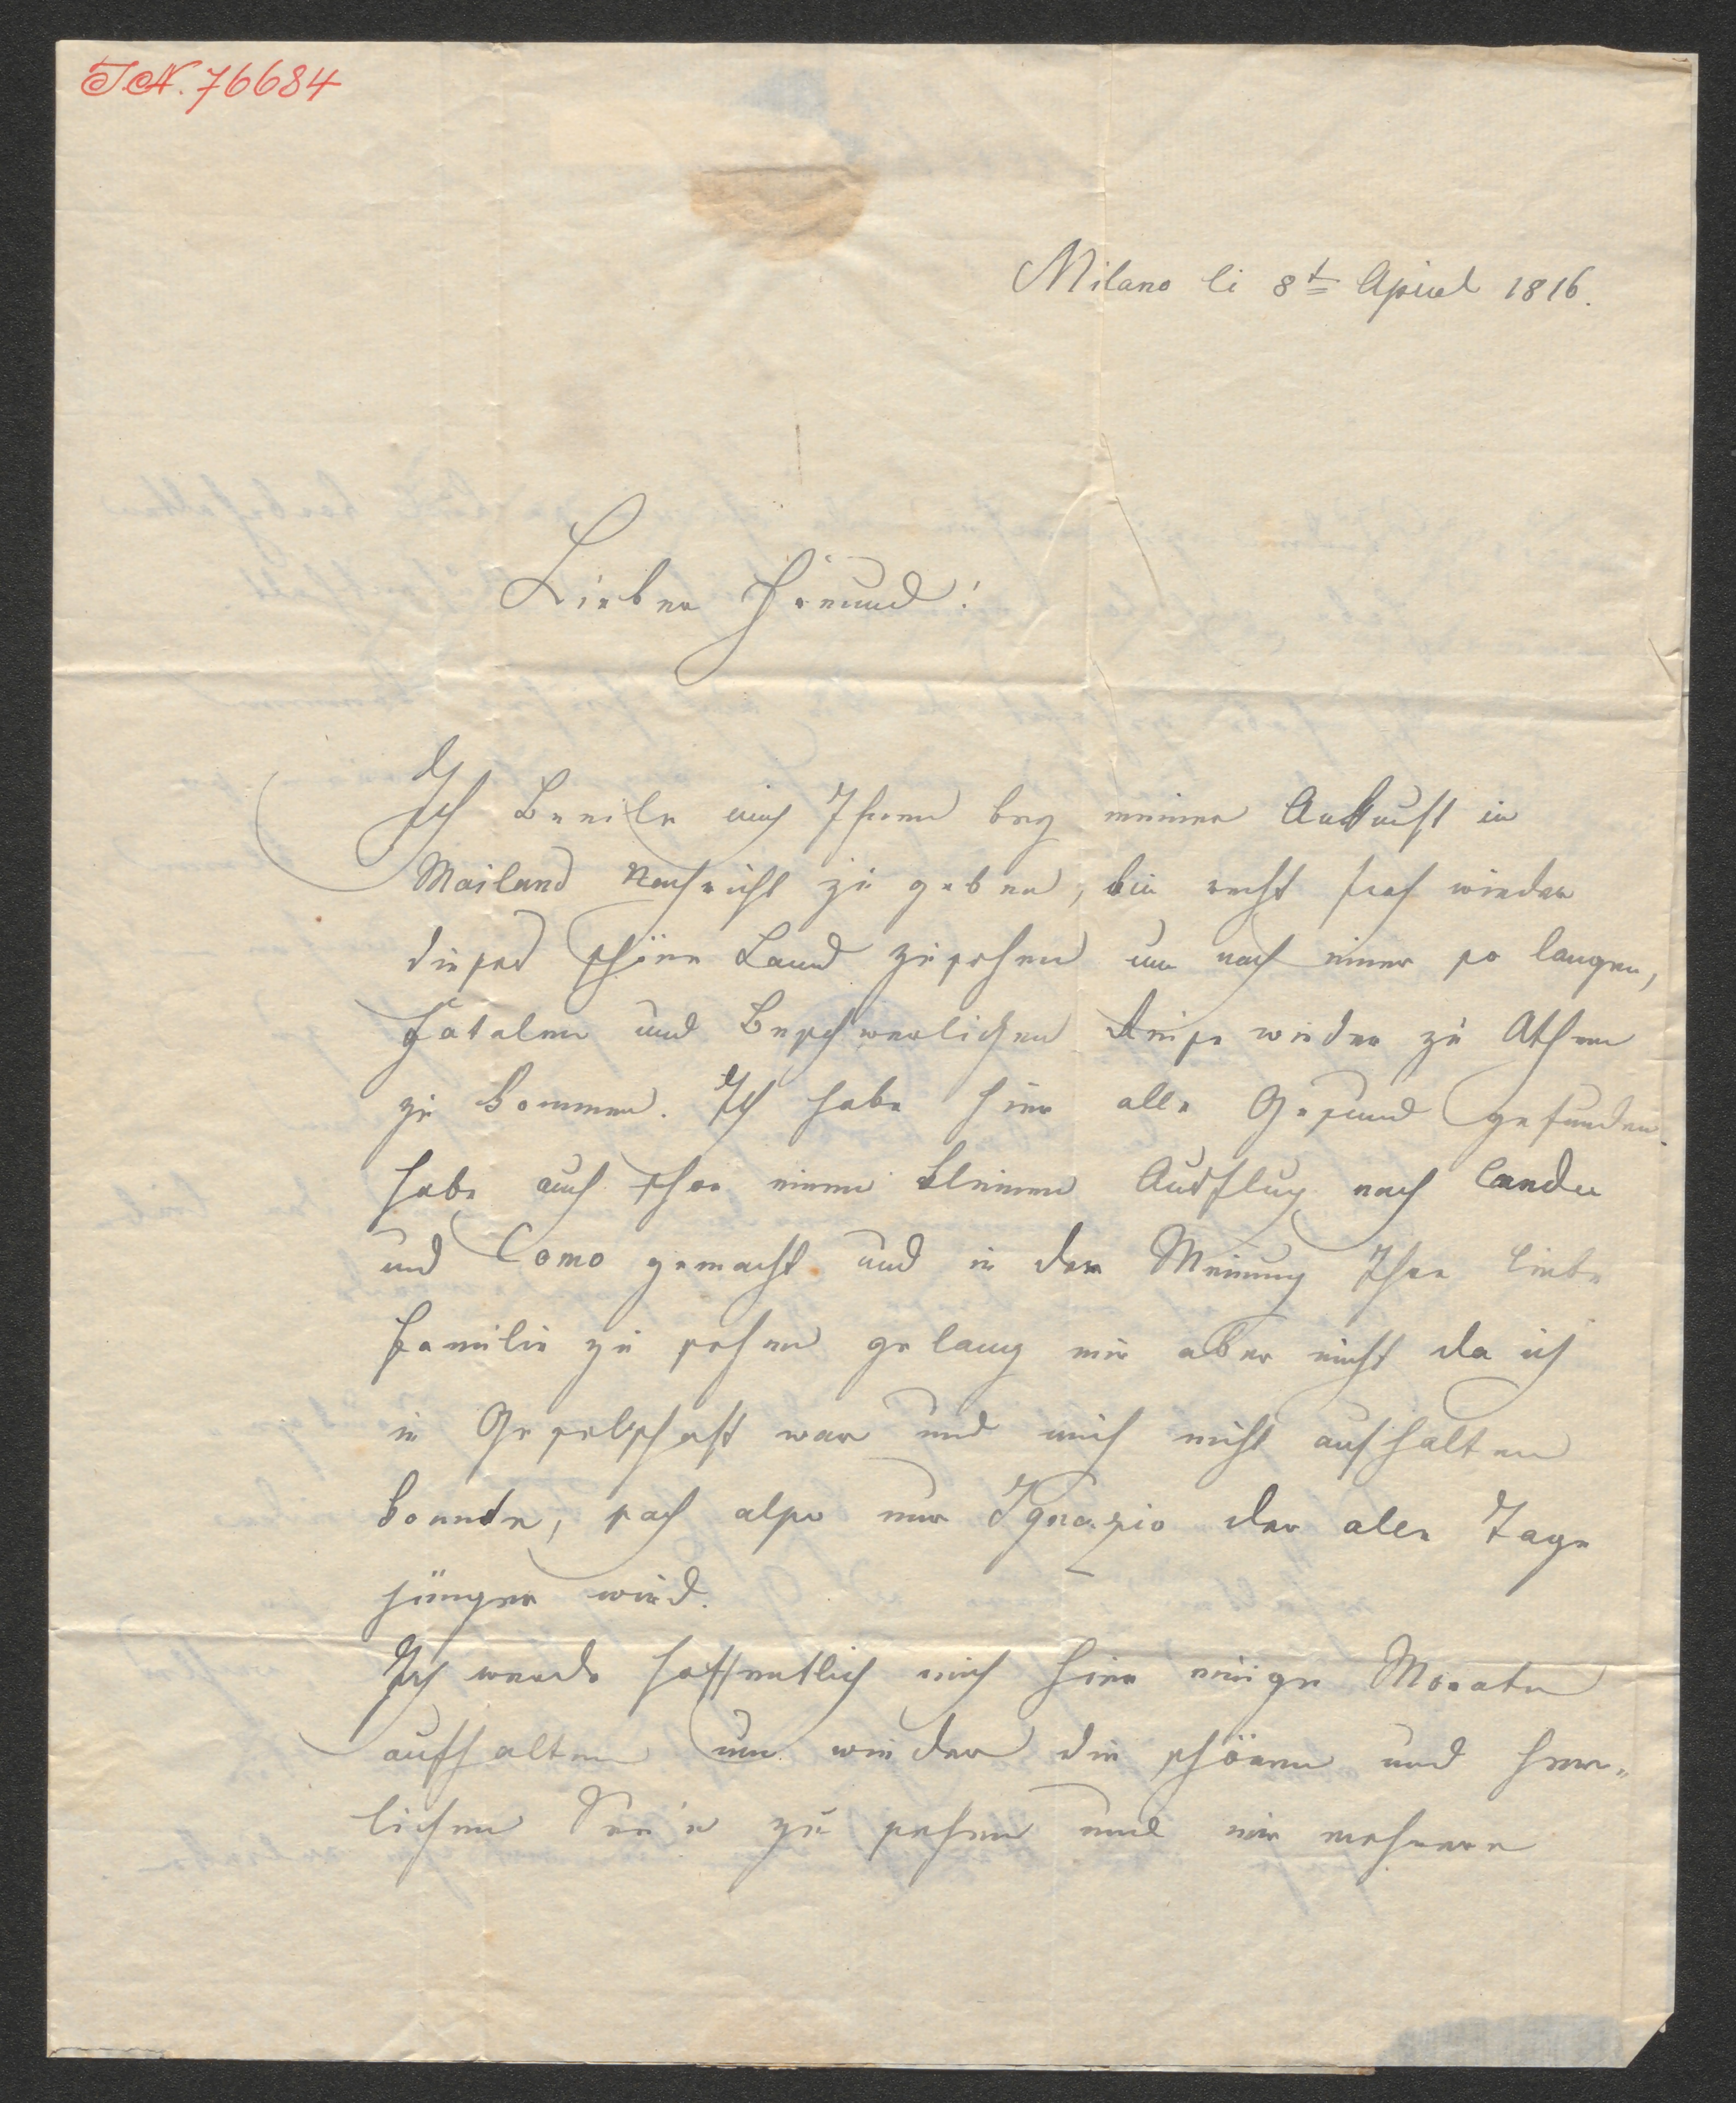 IN. 76684
Milano li 8t April 1816.
Lieber Freund!
Ich Beeile mich Ihnen bey meiner Ankunft in
Mailand Nachricht zu geben, bin recht froh wieder
dieses schöne Land zusehen um nach einer so langen,
Fatalen und Beschwerlichen Reise wieder zu Athem
zu kommen. Ich habe hier alle Gesund gefunden.
habe auch schon einen kleinen Ausflug nach
und Como gemacht und in der Meinung Ihre liebe
Familie zu sehen gelang mir aber nicht da ich
in Geselschaft war und mich nicht aufhalten
konnte, sah also nur Ignazio der alle Tage
jünger wird.
Ich werde hoffentlich mich hier einige Monate
aufhalten um wieder die schönen und herr„
lichen See'n zu sehen und mir mehrere